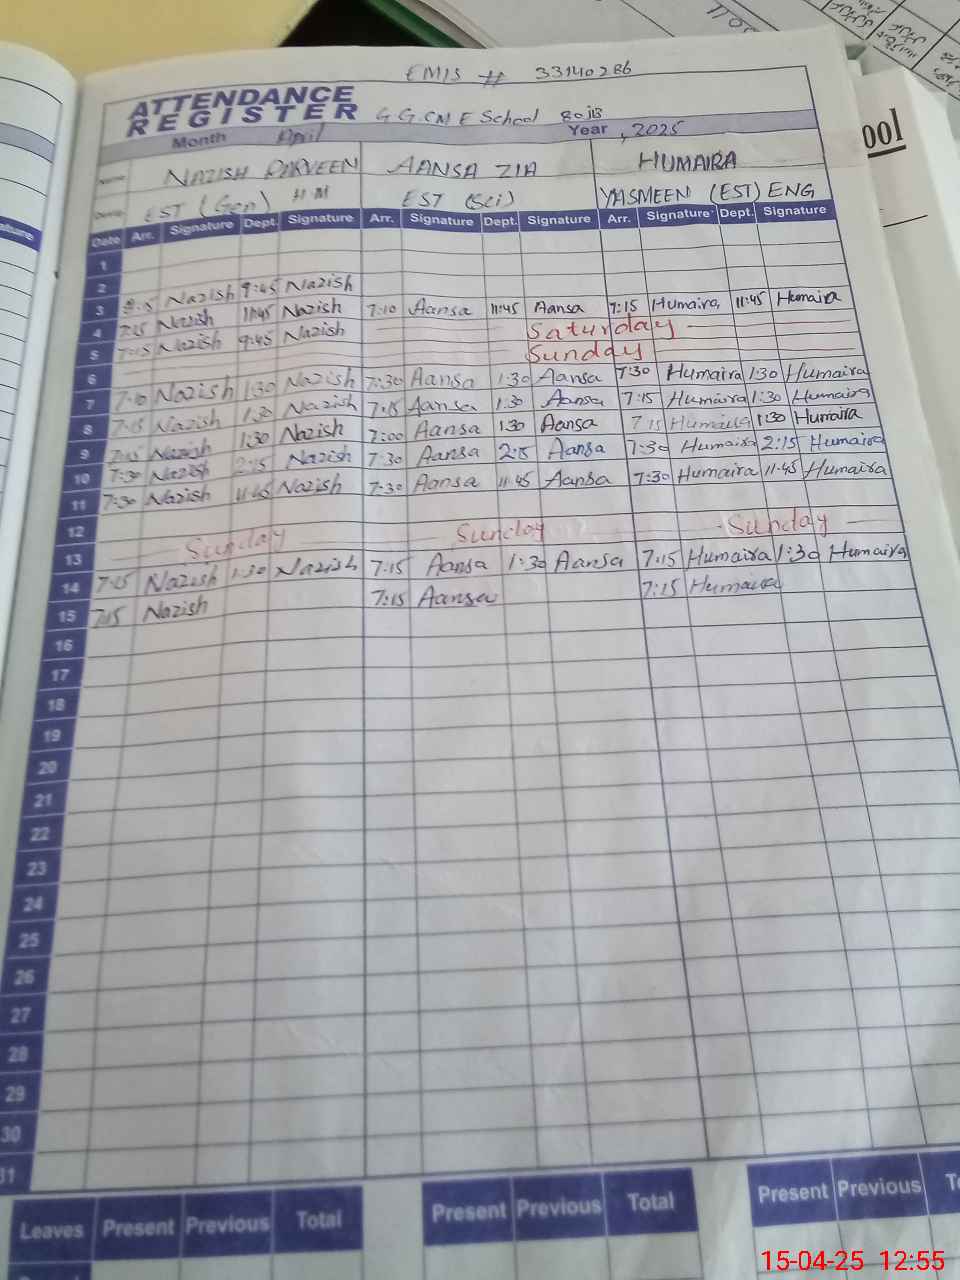 EMIS # 33140286
ATTENDANCE
REGISTER G G.CM E School 80 JB
Month April Year , 2025
Name NAZISH PARVEEN AANSA ZIA HUMAIRA
EST (Gen) H M EST (Sci) YASMEEN (EST) ENG
Date Arr. Signature Dept. Signature Arr. Signature Dept. Signature Arr. Signature Dept. Signature
1
2 Nazish 9:45 Nazish
3 7:15 Nazish 11:45 Nazish 7:10 Aansa 11:45 Aansa 7:15 Humaira 11:45 Humaira
4 7:15 Nazish 9:45 Nazish Saturday
5 Sunday
6 7:10 Nazish 1:30 Nazish 7:30 Aansa 1:30 Aansa 7:30 Humaira 1:30 Humaira
7 7:15 Nazish 1:30 Nazish 7:15 Aansa 1:30 Aansa 7:15 Humaira 1:30 Humaira
8 Nazish 1:30 Nazish 7:00 Aansa 1:30 Aansa 7:15 Humaira 1:30 Humaira
9 7:30 Nazish 2:15 Nazish 7:30 Aansa 2:15 Aansa 7:30 Humaira 2:15 Humaira
10 7:30 Nazish 11:45 Nazish 7:30 Aansa 11:45 Aansa 7:30 Humaira 11:45 Humaira
11
12 Sunday Sunday Sunday
13 7:15 Nazish 1:30 Nazish 7:15 Aansa 1:30 Aansa 7:15 Humaira 1:30 Humaira
14 7:15 Nazish 7:15 Aansa 7:15 Humaira
15
16
17
18
19
20
21
22
23
24
25
26
27
28
29
30
31
Leaves Present Previous Total Present Previous Total Present Previous
15-04-25 12:55